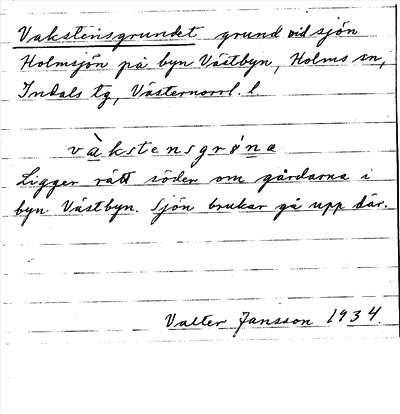 Vakstensgrundet grund vid sjön
Holmsjön på byn Västbyn, Holms sn,
Indals tg, Västernorrl. l.
vàkstensgrǿna
Ligger rätt söder om gårdarna i
byn Västbyn. Sjön brukar gå upp där.
Valter Jansson 1934.